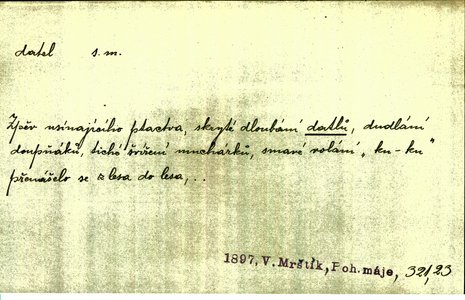 datel s. m.
Zpěv usínajícího ptactva, skryté dloubání datlů, dudlání
doupňáků, tiché šviření muchárků, smavé volání „ku-ku"
přenášelo se z lesa do lesa, . .
1897, V. Mrštík, Poh. máje, 321, 23